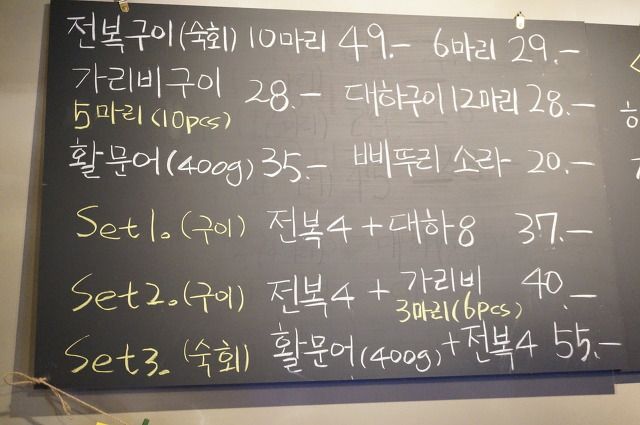 전복구이(숙회) 10마리 49.- 6마리 29.-
가리비구이 28.- 대하구이 12마리 28.-
5마리(10pcs)
활문어(400g) 35.- 삐뚜리 소라- 20.-
Set1. (구이) 전복4 + 대하8 37.-
Set2. (구이) 전복4 + 가리비 40.-
3마리(6pcs)
Set3. (숙회) 활문어(400g) + 전복4 55.-